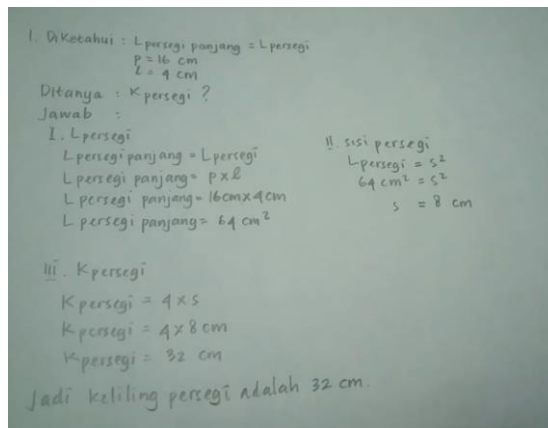 1. Diketahui : L persegi panjang = L persegi
p = 16 cm
l = 4 cm
Ditanya : K persegi ?
Jawab :
I. L persegi
L persegi panjang = L persegi
L persegi panjang = p x l
L persegi panjang = 16 cm x 4 cm
L persegi panjang = 64 cm²
II. sisi persegi
L persegi = s²
64 cm² = s²
s = 8 cm
III. K persegi
K persegi = 4 x s
K persegi = 4 x 8 cm
K persegi = 32 cm
Jadi keliling persegi adalah 32 cm.